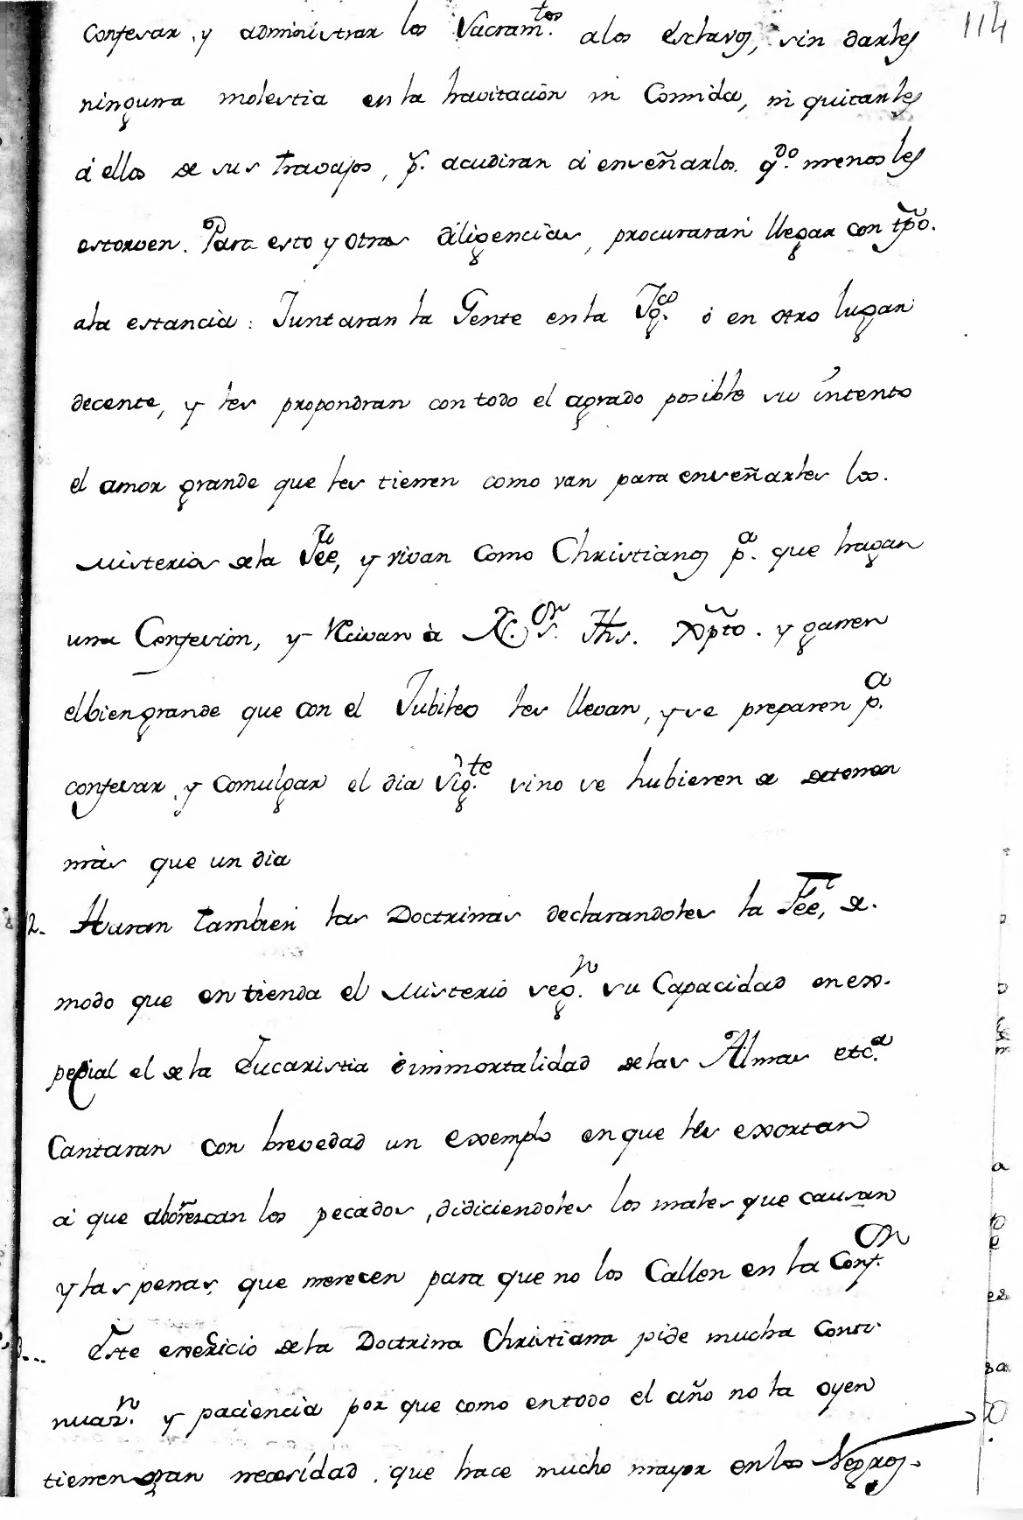 114
Confesar, y administrar los Sacram.tos a los esclavos, sin darles
ninguna molestia en la havitación ni Comida, ni quitarles
á ellos de sus travajos, y. acudiran á enseñarlos. q.do menos les
estorven. Para esto y otras diligencias, procuraran llegar con tpõ.
ala estancia: Juntaran la Gente en la Yg.ca ó en otro lugar
decente, y les propondran con todo el agrado posible su intento
el amor grande que les tienen como van para enseñarles los.
Misterios de la Fée, y vivan Como Christianos p.a que hagan
una Confesion, y Recivan à N. S.or Jhs. Xpto. y ganen
el bien grande que con el Jubileo les llevan, y se preparen p.a
confesar y Comulgar el dia sig.te sino se hubieren de detener
màs que un dia
2. Haran tambien las Doctrinas declarandoles la Fée, de.
modo que entienda el Misterio seg.n su Capacidad en ex-
pecial el de la Eucaristia é immortalidad de las Almas etc.a
Cantaran con brevedad un exemplo en que les exortan
á que aborrescan los pecados, didiciendoles los males que causan
y las penas que merecen para que no los Callen en la Conf.on
Este exercicio de la Doctrina Christiana pide mucha Conti-
nuaz.n y paciencia por que como en todo el año no la oyen
tienen gran necesidad, que hace mucho mayor en los Negros.